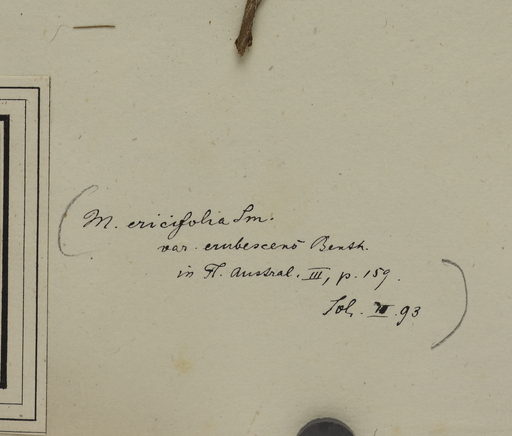 (M. ericifolia Sm.
var. erubescens Benth.
in Fl. Austral. III, p. 159.
93)